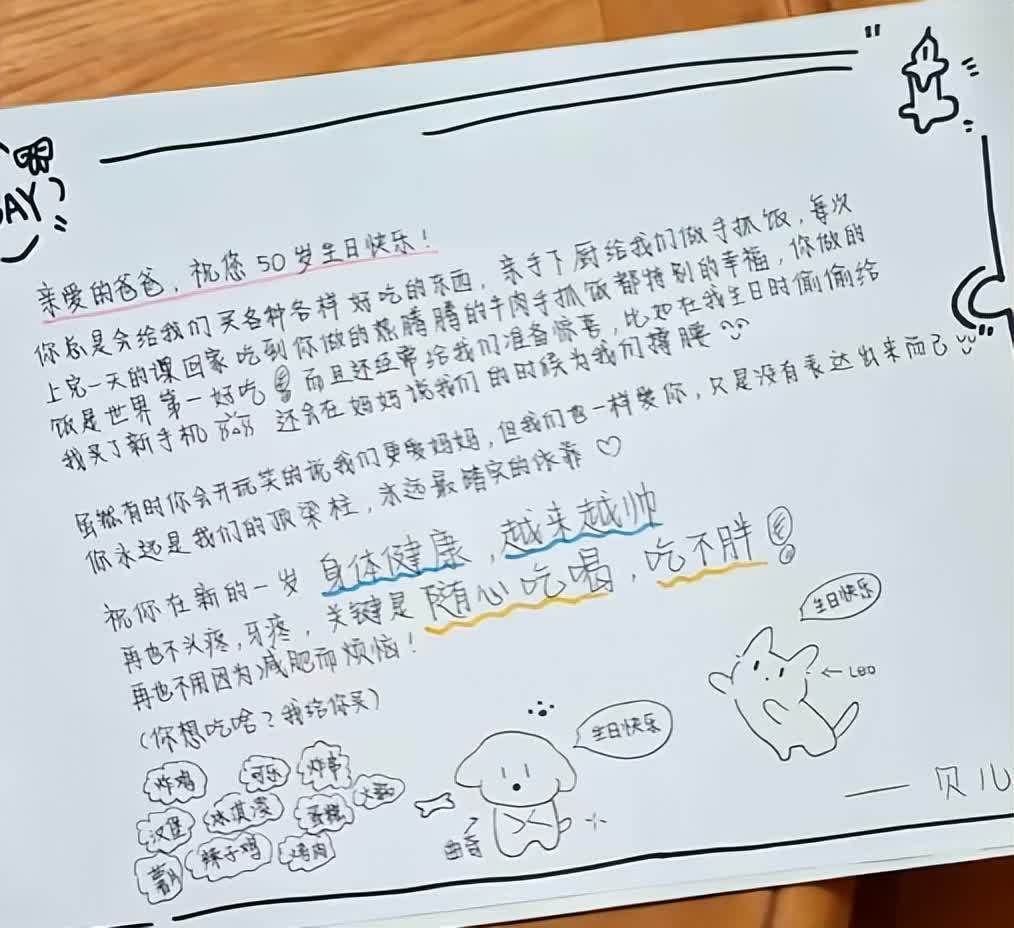 AY
亲爱的爸爸，祝您50岁生日快乐！
你总是会给我们买各种各样好吃的东西，亲手下厨给我们做手抓饭，每次
上完一天的课回家吃到你做的热腾腾的牛肉手抓饭都特别的幸福，你做的
饭是世界第一好吃 而且还经常给我们准备惊喜，比如在我生日时偷偷给
我买了新手机 还会在妈妈说我们的时候为我们撑腰
虽然有时你会开玩笑的说我们更爱妈妈，但我们也一样爱你，只是没有表达出来而已
你永远是我们的顶梁柱，永远最踏实的依靠♡
祝你在新的一岁 身体健康，越来越帅
再也不头疼，牙疼，关键是随心吃喝，吃不胖
再也不用因为减肥而烦恼！
（你想吃啥？我给你买）
生日快乐
← LEO
生日快乐
炸鸡 可乐 炸串
汉堡 冰淇淋 蛋糕 火锅
薯片 辣子鸡 烤肉
—— 贝儿